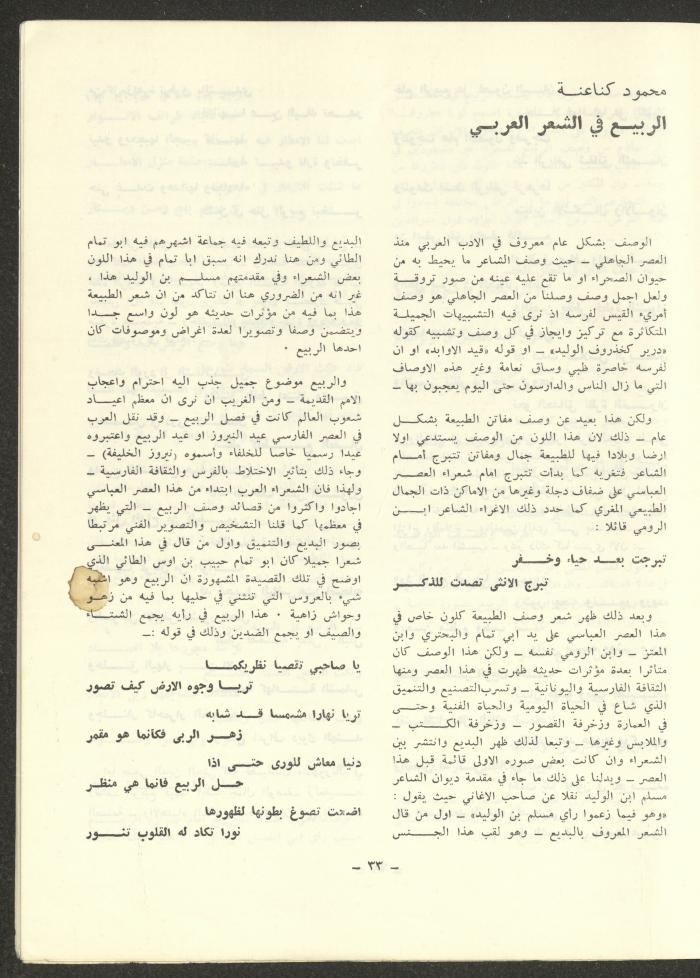 محمود كناعنة
الربيع في الشعر العربي
الوصف بشكل عام معروف في الادب العربي منذ
العصر الجاهلي ــ حيث وصف الشاعر ما يحيط به من
حيوان الصحراء او ما تقع عليه عينه من صور تروقة
ولعل اجمل وصف وصلنا من العصر الجاهلي هو وصف
أمريء القيس لفرسه اذ نرى فيه التشبيهات الجميلة
المتكاثرة مع تركيز وايجاز في كل وصف وتشبيه كقوله
«درير كخذروف الوليد» ــ او قوله «قيد الاوابد» او ان
لفرسه خاصرة ظبي وساق نعامة وغير هذه الاوصاف
التي ما زال الناس والدارسون حتى اليوم يعجبون بها ــ
ولكن هذا بعيد عن وصف مفاتن الطبيعة بشكل
عام ــ ذلك لان هذا اللون من الوصف يستدعي اولا
ارضا وبلادا فيها للطبيعة جمال ومفاتن تتبرج أمام
الشاعر فتغريه كما بدأت تتبرج امام شعراء العصر
العباسي على ضفاف دجلة وغيرها من الاماكن ذات الجمال
الطبيعي المغري كما حدد ذلك الاغراء الشاعر ابن
الرومي قائلا :
تبرجت بعد حياء وخفر
تبرج الانثى تصدت للذكر
وبعد ذلك ظهر شعر وصف الطبيعة كلون خاص في
هذا العصر العباسي على يد ابي تمام والبحتري وابن
المعتز ــ وابن الرومي نفسه ــ ولكن هذا الوصف كان
متأثرا بعدة مؤثرات حديثه ظهرت في هذا العصر ومنها
الثقافة الفارسية واليونانية ــ وتسرب التصنيع والتنميق
الذي شاع في الحياة اليومية والحياة الفنية وحتى
في العمارة وزخرفة القصور ــ وزخرفة الكتب ــ
والملابس وغيرها ــ وتبعا لذلك ظهر البديع وانتشر بين
الشعراء وان كانت بعض صوره الاولى قائمة قبل هذا
العصر ــ ويدلنا على ذلك ما جاء في مقدمة ديوان الشاعر
مسلم ابن الوليد نقلا عن صاحب الاغاني حيث يقول :
«وهو فيما زعموا رأي مسلم بن الوليد» ــ اول من قال
الشعر المعروف بالبديع ــ وهو لقب هذا الجنس
البديع واللطيف وتبعه فيه جماعة اشهرهم فيه ابو تمام
الطائي ومن هنا ندرك انه سبق ابا تمام في هذا اللون
بعض الشعراء وفي مقدمتهم مسلم بن الوليد هذا ،
غير انه من الضروري هنا ان نتاكد من ان شعر الطبيعة
هذا بما فيه من مؤثرات حديثه هو لون واسع جدا
ويتضمن وصفا وتصويرا لعدة اغراض وموصوفات كان
احدها الربيع ٠
والربيع موضوع جميل جذب اليه احترام واعجاب
الامم القديمة ــ ومن الغريب ان نرى ان معظم اعياد
شعوب العالم كانت في فصل الربيع ــ وقد نقل العرب
في العصر الفارسي عيد النيروز او عيد الربيع واعتبروه
عيدا رسميا خاصا للخلفاء وأسموه (نيروز الخليفة) ــ
وجاء ذلك بتأثير الاختلاط بالفرس والثقافة الفارسية ــ
ولهذا فان الشعراء العرب ابتداء من هذا العصر العباسي
اجادوا واكثروا من قصائد وصف الربيع ــ التي يظهر
في معظمها كما قلنا التشخيص والتصوير الفني مرتبطا
بصور البديع والتنميق واول من قال في هذا المعنى
شعرا جميلا كان ابو تمام حبيب بن اوس الطائي الذي
اوضح في تلك القصيدة المشهورة ان الربيع وهو اشبه
شيء بالعروس التي تنثني في حليها بما فيه من زهو
وحواش زاهية ٠ هذا الربيع في رأيه يجمع الشتاء
والصيف او يجمع الضدين وذلك في قوله :ــ
يا صاحبي تقصيا نظريكما
تريا وجوه الارض كيف تصور
تريا نهارا مشمسا قد شابه
زهر الربى فكأنما هو مقمر
دنيا معاش للورى حتى اذا
حل الربيع فانما هي منظر
اضحت تصوغ بطونها لظهورها
نورا تكاد له القلوب تنور
ــ ٣٣ ــ